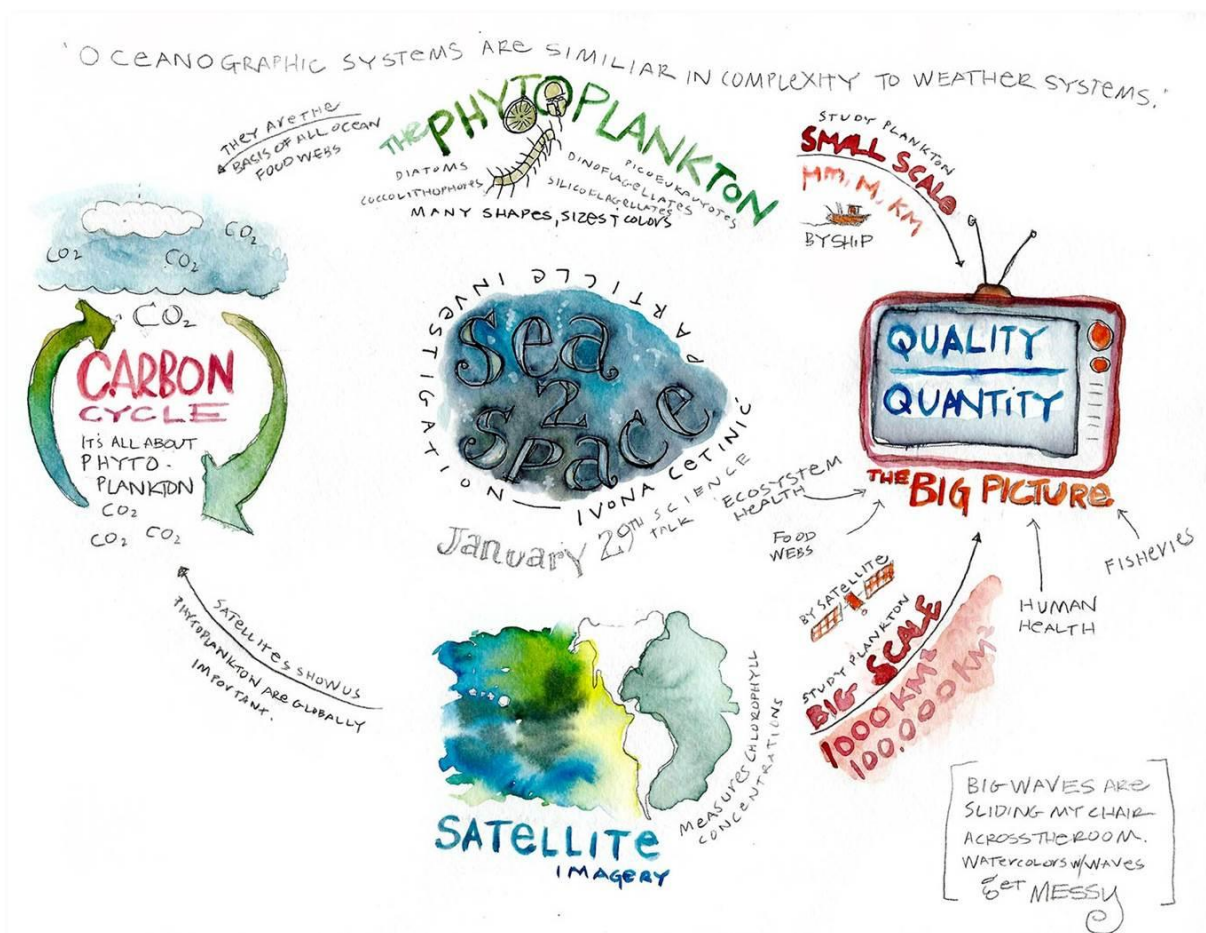 'OCEANOGRAPHIC SYSTEMS ARE SIMILIAR IN COMPLEXITY TO WEATHER SYSTEMS.'
THEY ARE THE
BASIS OF ALL OCEAN
FOOD WEBS
THE PHYTOPLANKTON
DIATOMS
COCCOLITHOPHORES
DINOFLAGELLATES
SILICOFLAGELLATES
PICOEUKAUYOTES
MANY SHAPES, SIZES + COLORS
STUDY PLANKTON
SMALL SCALE
MM, M, KM
BY SHIP
CO2
CO2
CO2
CO2
CARBON
CYCLE
IT'S ALL ABOUT
PHYTO-
PLANKTON
CO2
CO2 CO2
PARTICLE INVESTIGATION
Sea
2
Space
IVONA CETINIC
January 29TH SCIENCE
TALK
QUALITY
QUANTITY
THE BIG PICTURE
ECOSYSTEM
HEALTH
FOOD
WEBS
HUMAN
HEALTH
FISHERIES
BY SATELLITE
STUDY PLANKTON
BIG SCALE
1000 KM2
100,000 KM2
SATELLITES SHOW US
PHYTOPLANKTON ARE GLOBALLY
IMPORTANT.
MEASURES CHLOROPHYLL
CONCENTRATIONS
SATELLITE
IMAGERY
BIG WAVES ARE
SLIDING MY CHAIR
ACROSS THE ROOM.
WATERCOLORS W/WAVES
GET MESSY